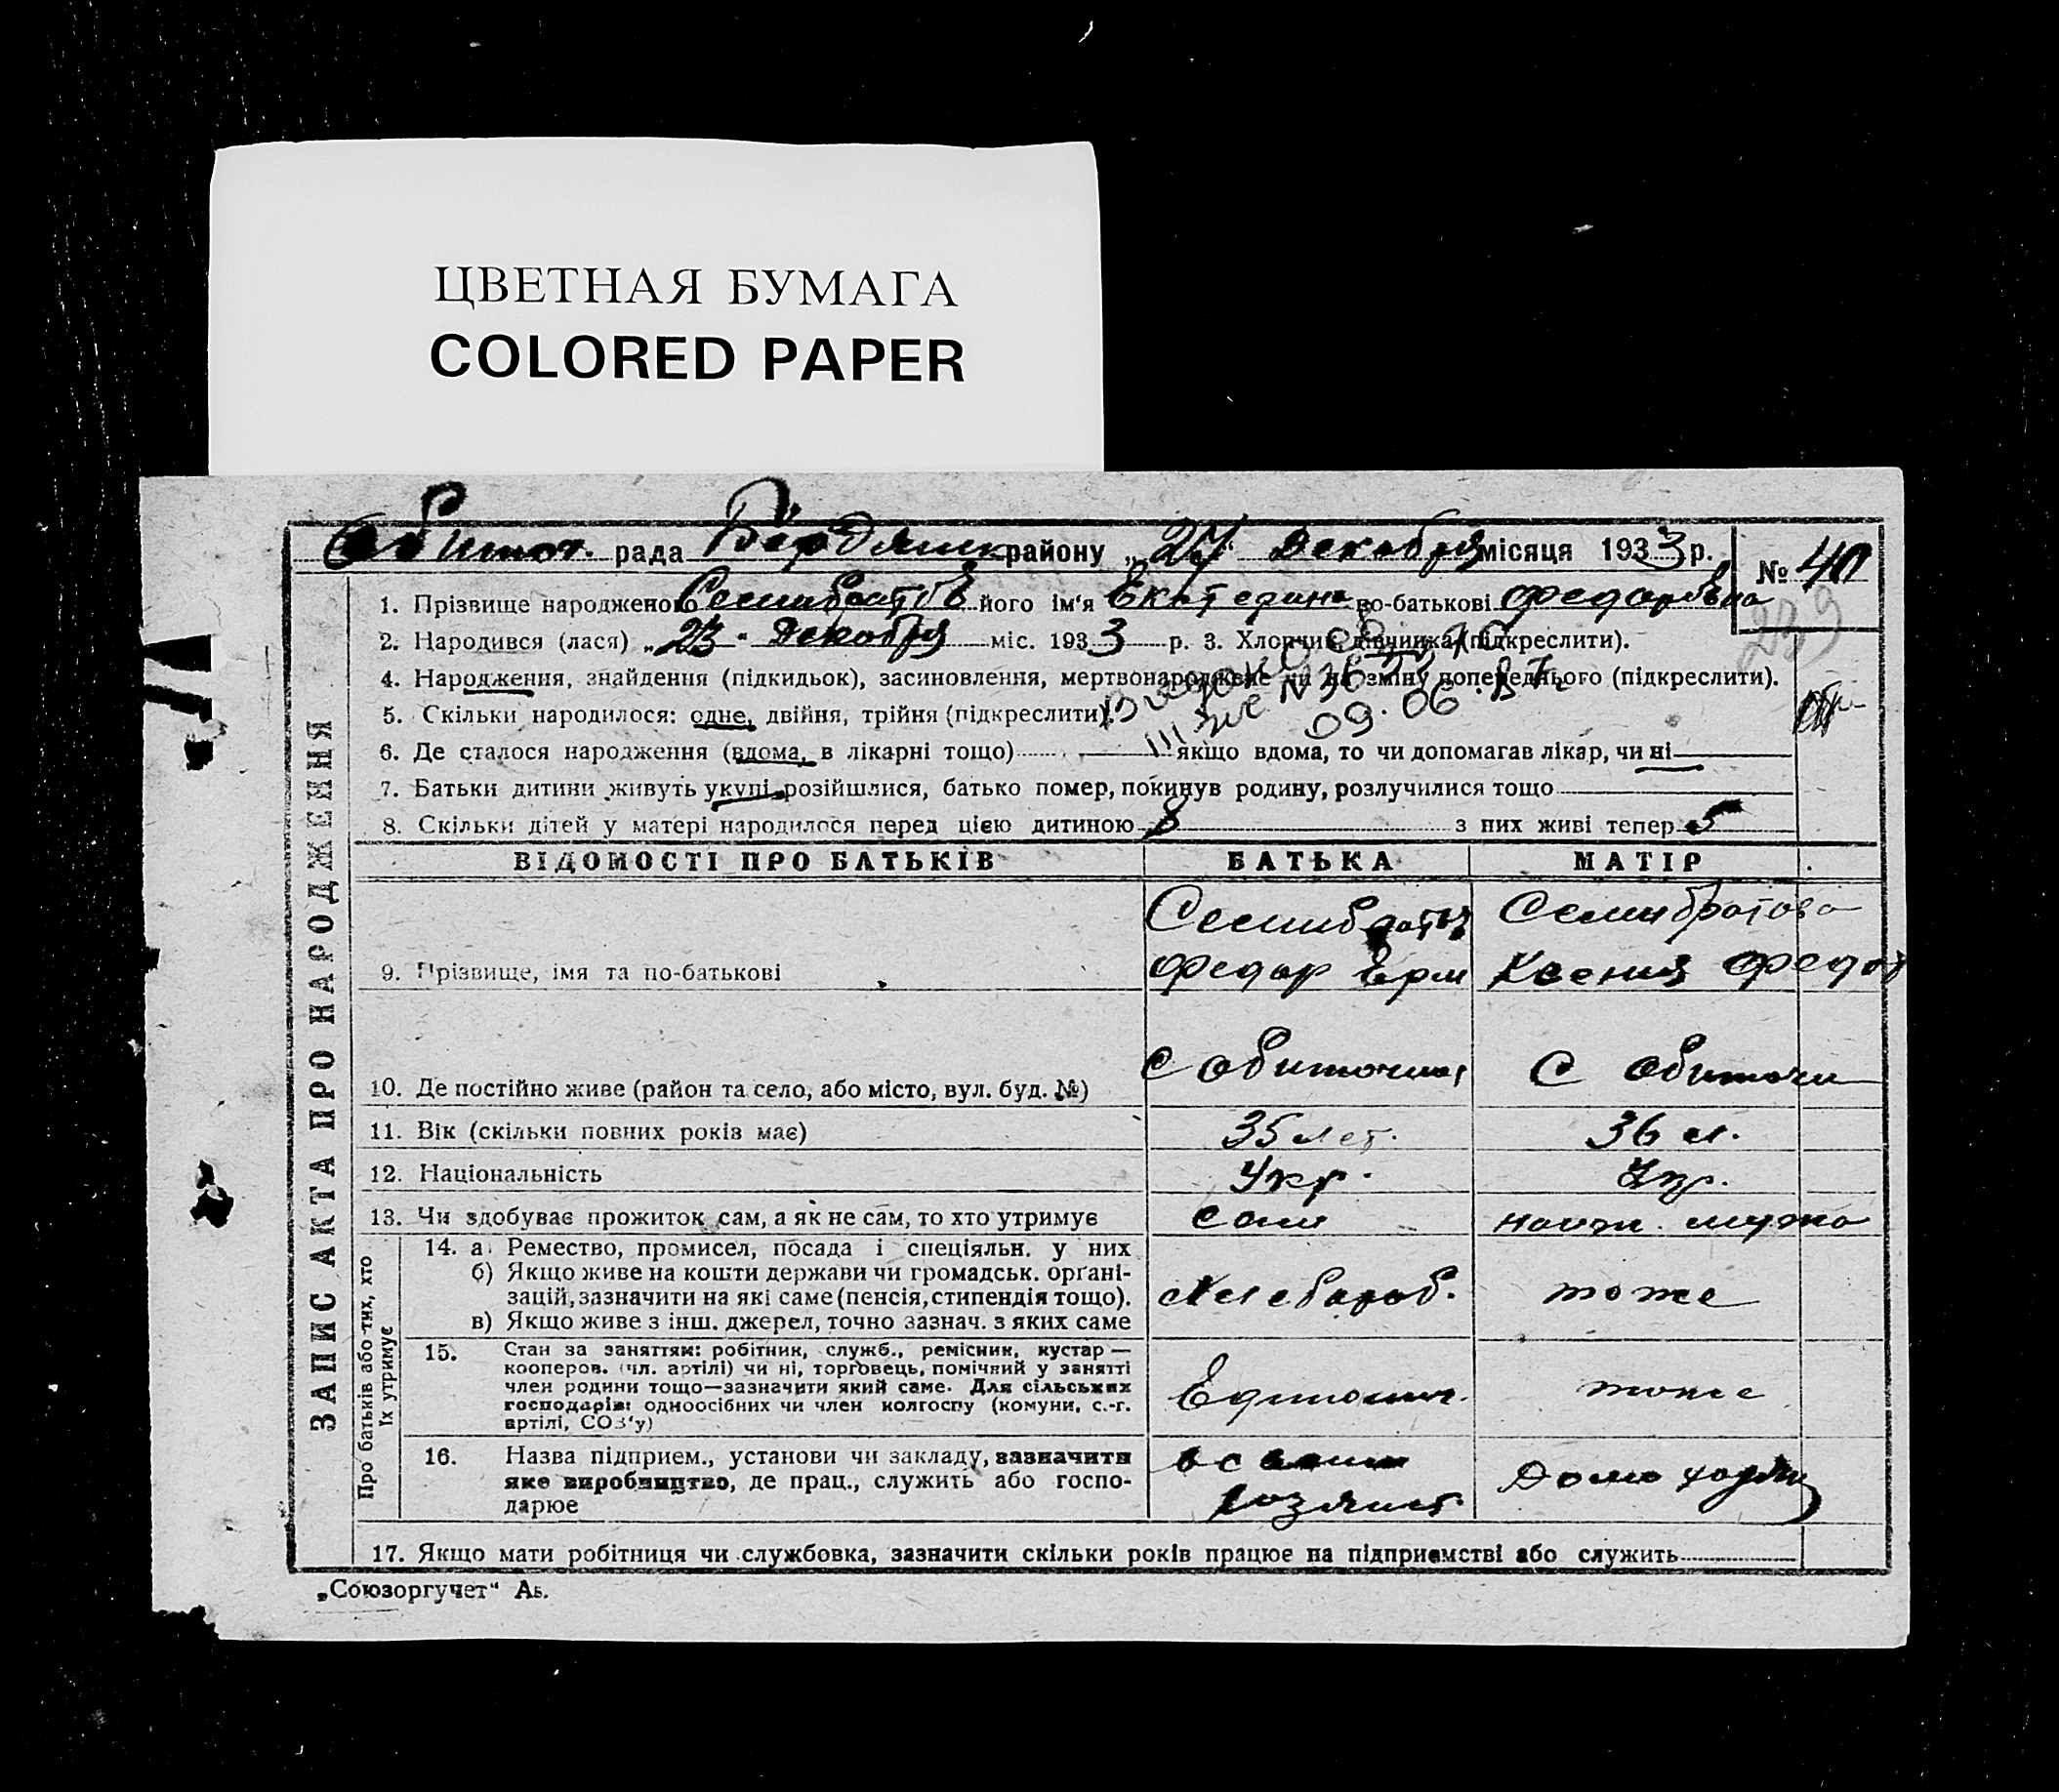 ЦВЕТНАЯ БУМАГА
COLORED PAPER
Обиточ. рада Бердянск району „27“ Декабря місяця 1933 р. № 40
239
1. Прізвище народженого Семибратов його ім'я Екатерина по-батькові Федоровна
2. Народився (лася) „23“ Декабря міс. 1933 р. 3. Хлопчик, дівчинка (підкреслити).
4. Народження, знайдення (підкидьок), засиновлення, мертвонароджене чи на зміну попереднього (підкреслити).
5. Скільки народилося: одне, двійня, трійня (підкреслити).
09. 06.
6. Де сталося народження (вдома, в лікарні тощо) якщо вдома, то чи допомагав лікар, чи ні
7. Батьки дитини живуть укупі, розійшлися, батько помер, покинув родину, розлучилися тощо
8. Скільки дітей у матері народилося перед цією дитиною 8 з них живі тепер 5
ВІДОМОСТІ ПРО БАТЬКІВ БАТЬКА МАТІР
9. Прізвище, імя та по-батькові Семибратов Федор Ерм Семибратова Ксения Федот
10. Де постійно живе (район та село, або місто, вул. буд. №) С Обиточная С Обиточн
11. Вік (скільки повних років має) 35 лет. 36 л.
12. Національність Укр. Укр.
13. Чи здобуває прожиток сам, а як не сам, то хто утримує сам мужа
14. а) Ремество, промисел, посада і спеціяльн. у них
б) Якщо живе на кошти держави чи громадськ. орґані-
зацій, зазначити на які саме (пенсія, стипендія тощо). Хлебороб. тоже
в) Якщо живе з інш. джерел, точно зазнач. з яких саме
15. Стан за заняттям: робітник, служб., ремісник, кустар—
кооперов. (чл. артілі) чи ні, торговець, помічний у занятті
член родини тощо—зазначити який саме. Для сільських
господарів: одноосібних чи член колгоспу (комуни, с.-г.
артілі, СОЗ'у) Единолич. тоже
16. Назва підприєм., установи чи закладу, зазначити
яке виробництво, де прац., служить або госпо-
дарює в своем хозяйст. Домо хозяй
17. Якщо мати робітниця чи службовка, зазначити скільки років працює на підприємстві або служить
ЗАПИС АКТА ПРО НАРОДЖЕННЯ
Про батьків або тих, хто
їх утримує
„Союзоргучет“ Ав.